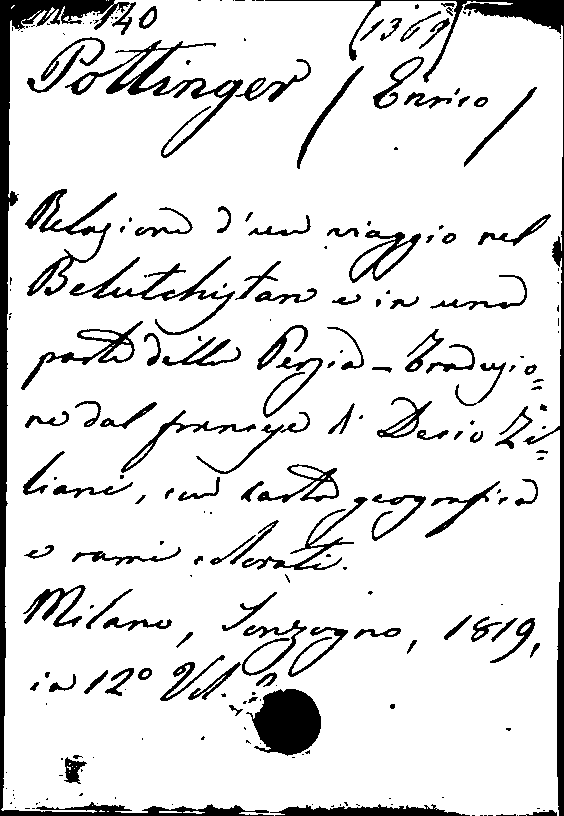 140 (1369)
Pottinger (Enrico)
Relazione d'un viaggio nel
Belutchistan e in una
parte della Persia – Traduzio=
ne dal francese di Decio Zi=
liani, con carta geografica
e rami colorati.
Milano, Sonzogno, 1819,
in 12° Vol.